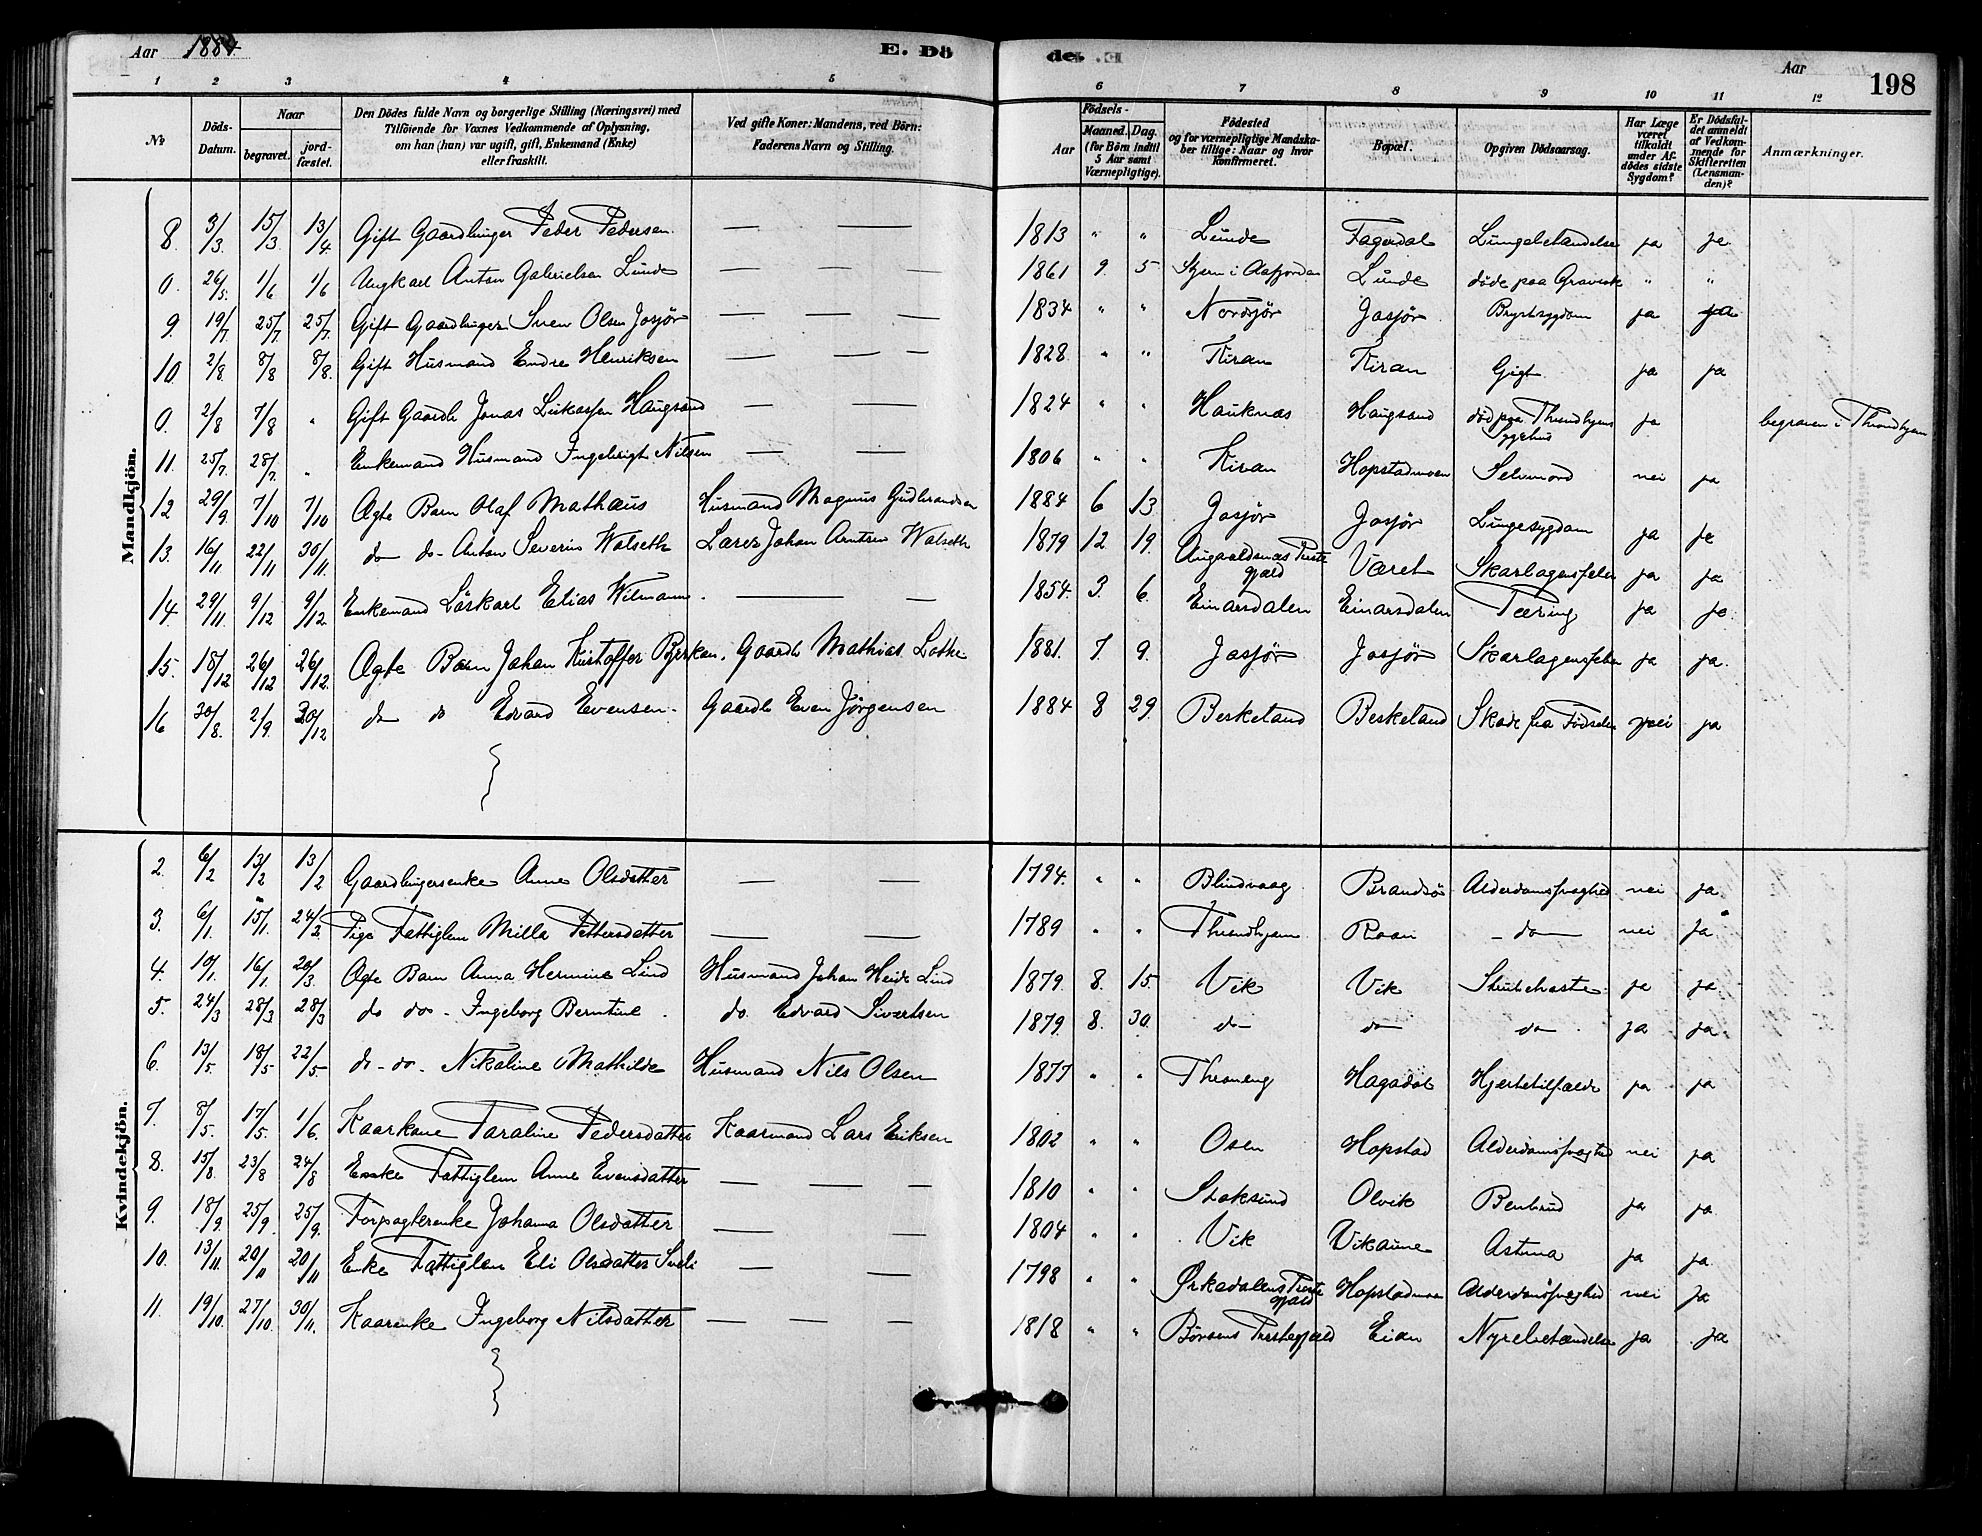 Aar 1884. E. Döde. Aar 198
1 2 3 4 5 6 7 8 9 10 11 12
No Döds-Datum. Naar begravet. jordfæstet. Den Dödes fulde Navn og borgerlige Stilling (Næringsvei) med Tilföiende for Voxnes Vedkommende af Oplysning, om han (hun) var ugift, gift, Enkemand (Enke) eller fraskilt. Ved gifte Koner: Mandens, ved Börn: Faderens Navn og Stilling. Födsels- Aar Maaned. Dag. (for Börn indtil 5 Aar samt Værnepligtige). Födested og for værnepligtige Mandskaber tillige: Naar og hvor Konfirmeret. Bopæl. Opgiven Dödsaarsag. Har Læge været tilkaldt under Afdödes sidste Sygdom? Er Dödsfaldet anmeldt af Vedkommende for Skifteretten (Lensmanden)? Anmærkninger.
Mandkjön.
8. 3/3. 15/3. 13/4 Gift Gaardbruger Peder Pedersen. — — 1813 " " Lunde Fagerdal Lungebetændelse ja ja
0. 26/5. 1/6 1/6 Ungkarl Anton Gabrielsen Lunde — — — 1861 9. 5 Skjern i Aafjorden Lunde döde paa Gravik " "
9. 19/7 25/7. 25/7. Gift Gaardbruger Sven Olsen Josjör — — — 1834 " " Nordsjör Josjör Brystsygdom ja ja
10. 2/8. 8/8 8/8. Gift Husmand Endre Henriksen — — — 1828. " " Kiran Kiran Gigt ja ja
0. 2/8 7/8 " Gift Gaardb Jonas Lukassen Haugsand — — 1824 " " Hauknæs Haugsand död paa Throndhjems Sygehus ja begraven i Throndhjem
11. 25/7. 28/7. " Enkemand Husmand Ingebrigt Nilsen — — 1806 " " Kiran Hopstadmoen Selvmord nei ja
12 29/9 7/10 7/10 Ægte Barn Olaf Mathæus Husmand Magnus Gudbrandsen 1884 6 13 Josjör Josjör Lungesygdom ja ja
13. 16/11 22/11 30/11. do do- Anton Severin Walseth Lærer Johan Arntsen Walseth 1879 12 19. Præstegjæld Været Skarlagensfeber ja ja
14. 29/11. 9/12 9/12. Enkemand Löskarl Elias Wilmann. — — 1854. 3. 6. Einarsdalen Einarsdalen Tæring ja ja.
15. 18/12 26/12 26/12. Ægte Barn Johan Kristoffer Byrkan. Gaardb Mathias Lothe 1881. 7. 9. Josjör Josjör Skarlagensfeber ja ja.
16 30/8. 2/9. 30/12 do do Edvard Evensen. Gaardb Even Jörgensen 1884 8 29. Besketand Besketand Skade fra Födselen nei ja
Kvindekjön.
2. 6/2 13/2 13/2 Gaardbrugersenke Anne Olsdatter — — 1794. " " Blindvaag Brandsö Alderdomssvaghed nei ja.
3. 6/1. 15/1. 24/2. Pige Fattiglem Milla Pettersdatter — — 1789 " " Throndhjem Roan - do - nei ja
4. 10/1. 16/1. 20/3. Ægte Barn Anna Hermine Lind Husmand Johan Heide Lind 1879. 8. 15. Vik Vik Strubehoste ja ja
5. 24/3 28/3 28/3 do do- Ingeborg Berntine. do. Edvard Sivertsen 1879. 8. 30. do do do ja ja
6. 13/5 18/5 22/5. do- do- Nikoline Mathilde Husmand Nils Olsen 1877 " " Throneng Hagadal Hjertetilfælde ja ja
7. 8/5. 17/5. 1/6. Kaarkone Paraline Pedersdatter Kaarmand Lars Eriksen 1802 " " Osen Hopstad Alderdomssvaghed nei ja
8. 15/8. 23/8 24/8 Enke Fattiglem Anne Evensdatter — — — 1810 " " Stoksund Olvik Benbrud ja ja
9. 18/9. 25/9. 25/9. Forpagterenke Johanna Olsdatter — — 1804 " " Vik Vikaune Astma ja ja.
10. 13/11. 20/11 20/11 Enke Fattiglem Eli Olsdatter — — 1798 " " Ørkedalens Præstegjæld Hopstadmoen Alderdomssvaghed nei ja
11. 19/10. 27/10. 30/11. Kaarenke Ingeborg Nilsdatter — — — 1818 " " Börsens Præstegjæld Eian Nyrebetændelse ja ja